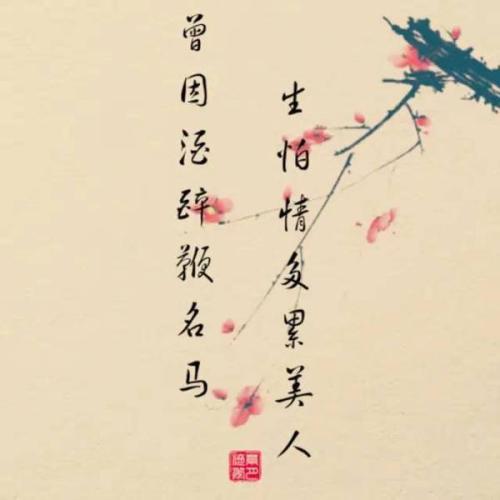 曾因酒醉鞭名马
生怕情多累美人